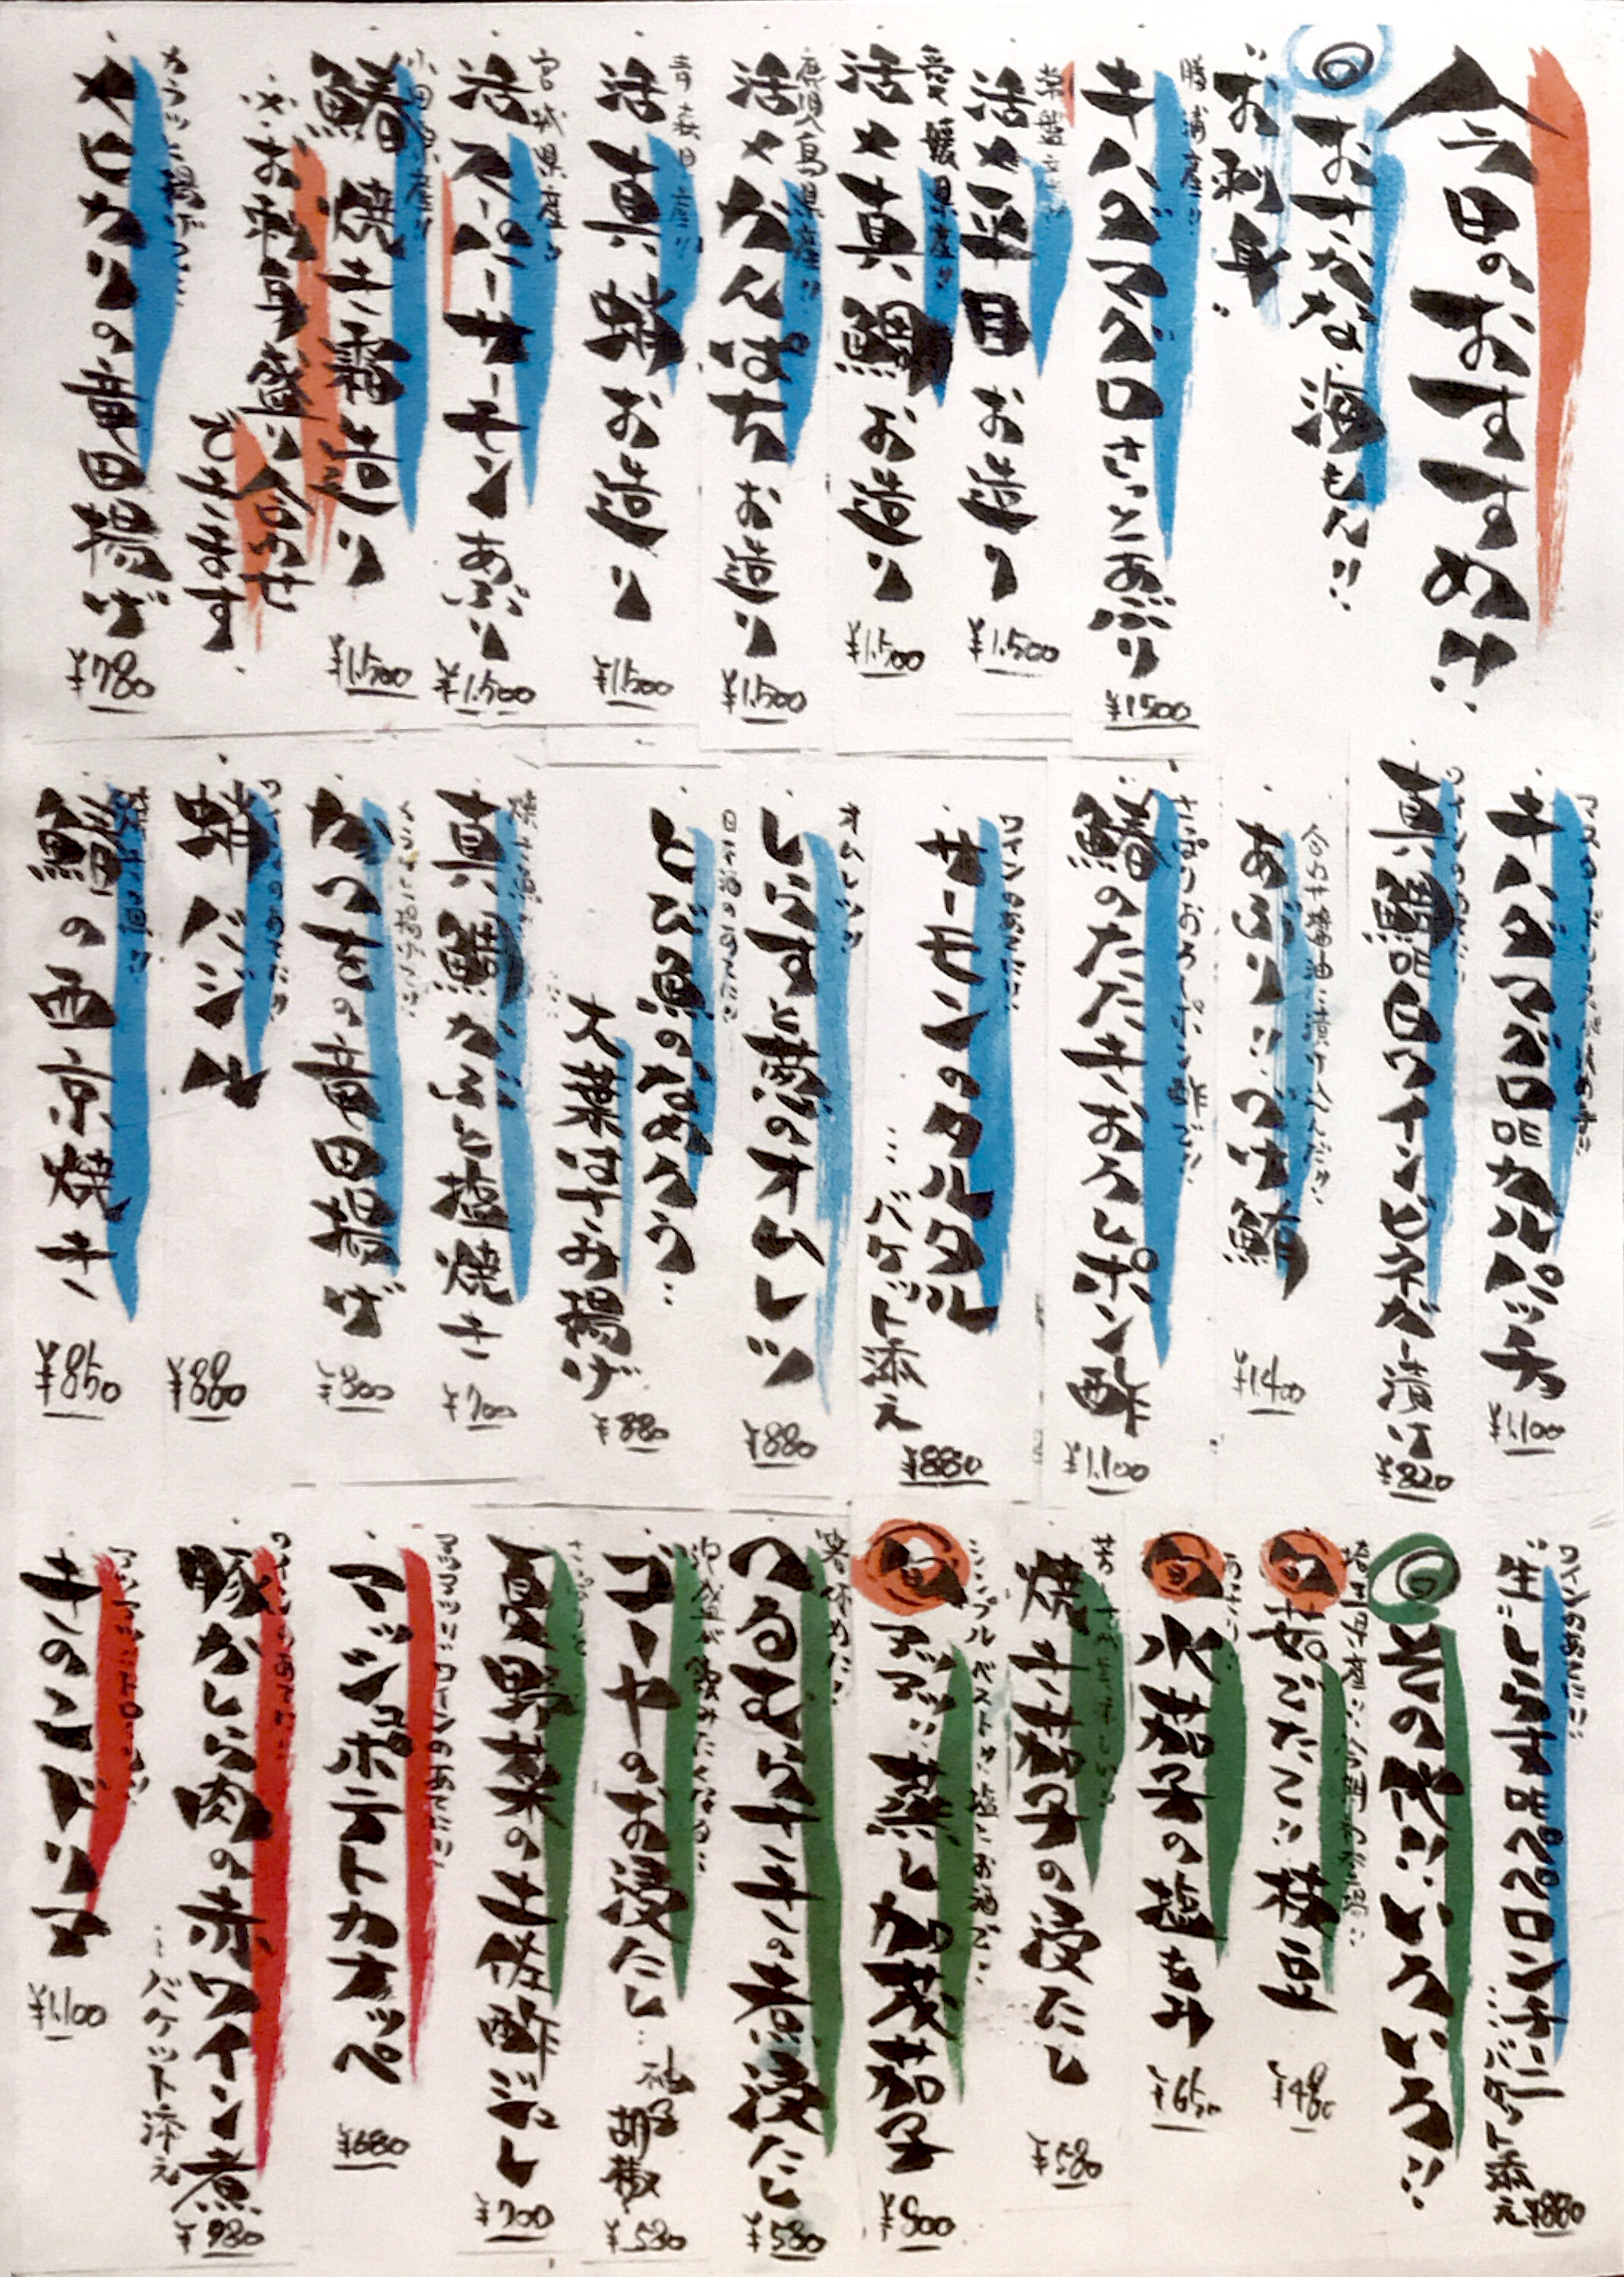 今日のおすすめ!!
◎おさかな・海もん!!
"お刺身"
勝浦産!!
キハダマグロさっとあぶり
¥1500
活〆平目お造り
¥1.500
愛媛県産!!
活〆真鯛お造り
¥1.500
鹿児島県産!!
活〆かんぱちお造り
¥1.500
青森県産!!
活真蛸お造り
¥1.500
宮城県産!!
活スーパーサーモンあぶり
¥1.500
小田原産!!
鰆焼き霜造り
¥1.500
※お刺身盛り合わせ
できます
カラッと揚げて…
メヒカリの竜田揚げ
¥780
キハダマグロ DE カルパッチョ
¥1.100
ワインのあてに!!
真鯛 DE 白ワインビネガー漬け
¥820
合わせ醤油に漬け込んだ!!
あぶり!!づけ鮪
¥1400
さっぱりおろしポン酢で!!
鰆のたたきおろしポン酢
¥1.100
ワインのあてに!!
サーモンのタルタル
…バケット添え
¥880
オムレツ!!
しらすと葱のオムレツ
¥880
日本酒のあてに!!
とび魚のなめろう…
大葉はさみ揚げ
¥880
真鯛かぶと塩焼き
¥700
カラッと揚げて!!
かつをの竜田揚げ
¥800
ワインのあてに!!
蛸バジル
¥880
鰆の西京焼き
¥850
ワインのあてに!!
生しらす DE ペペロンチーニ
…バケット添え
¥880
◎その他!!いろいろ!!
旬 茹でたて!!枝豆
¥480
旬 水茄子の塩もみ
¥650
焼き茄子の浸たし
¥580
シンプルベスト!!塩にお酒で!!
旬 アツアツ!!蒸し加茂茄子
¥800
つるむらさきの煮浸たし
¥580
ゴーヤのお浸たし…柚子胡椒
¥580
夏野菜の土佐酢浸し
¥700
アツアツ!!ワインのあてに!!
アンチョビポテトカナッペ
¥680
ワインのあてに!!
豚かしら肉の赤ワイン煮
…バケット添え
¥980
キのコドリア
¥1.100